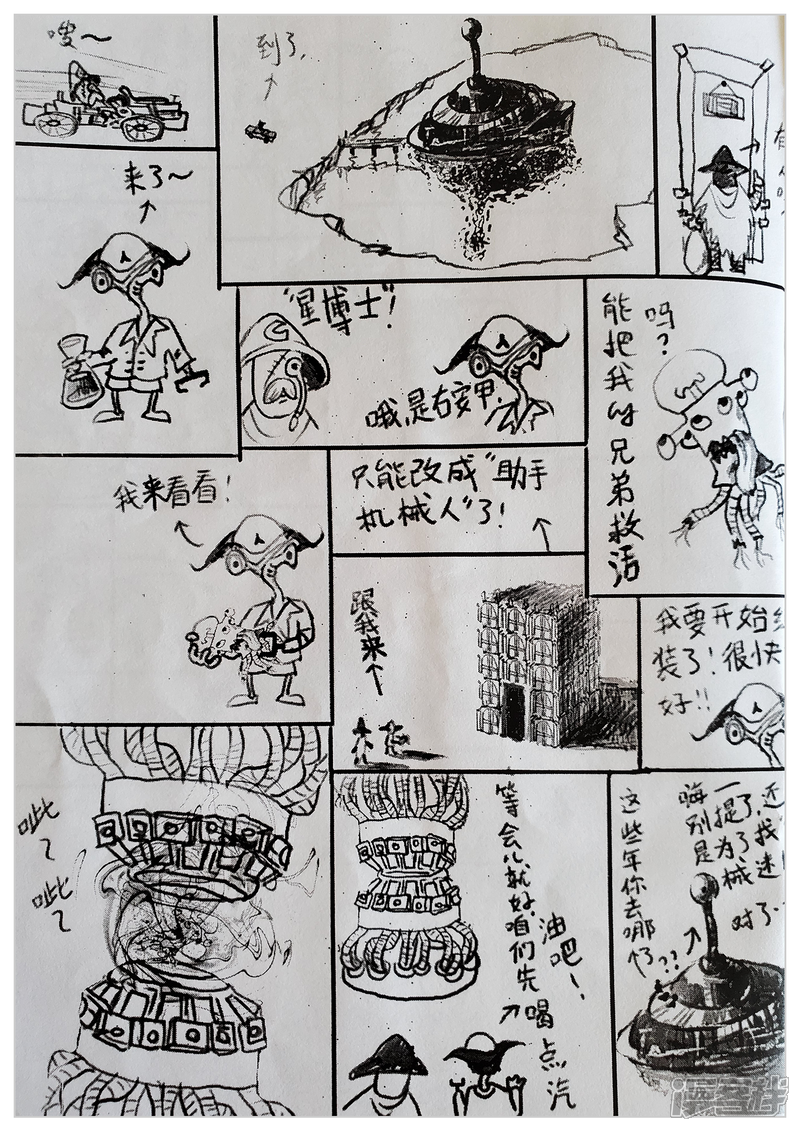 嗖～
到了，
有人吗
来了～
“星博士”！
哦，是右安甲，
能把我的兄弟救活
吗？
我来看看！
只能改成“助手
机械人”了！
跟我来
我要开始
装了！很快
好！！
呲～
呲～
等会儿就好，咱们先喝点汽
油吧！
这些年你去哪了??
嗨别
一提了，
是为了
找
械
迷
对了
漫客栈